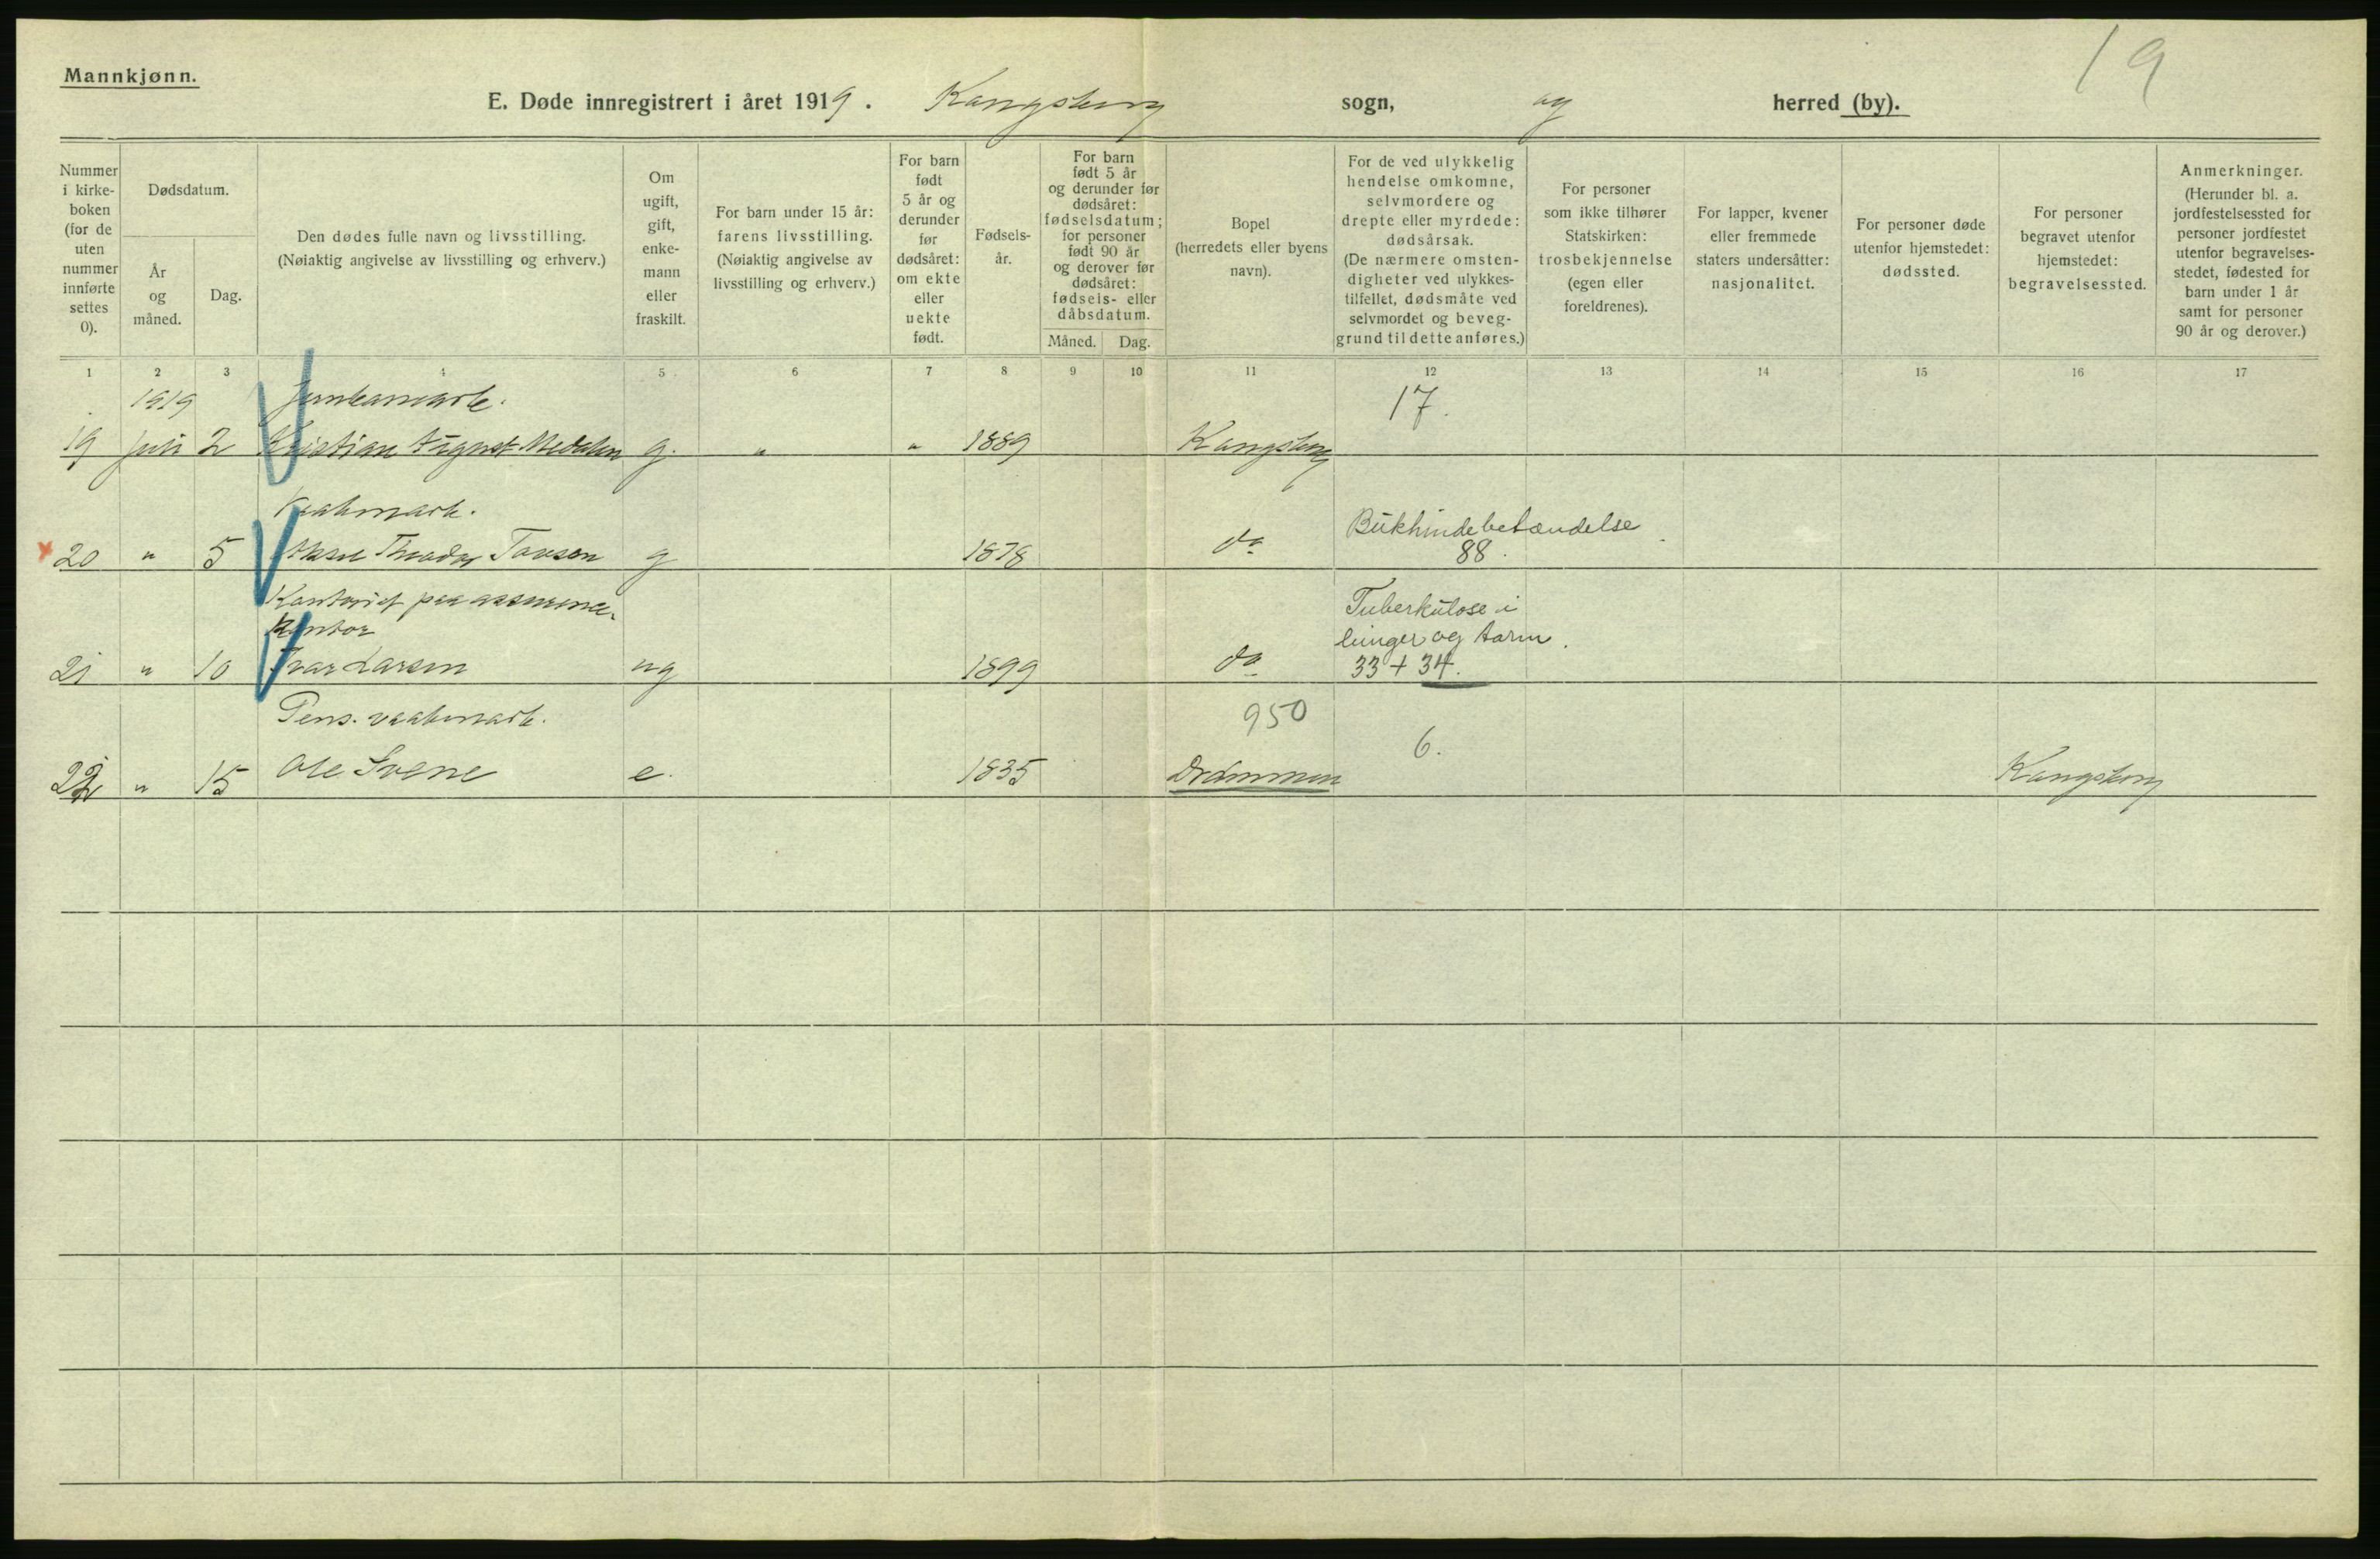 19
Mannkjønn.
E. Døde innregistrert i året 1919. Kongsberg sogn, og herred (by).
Nummer i kirke- boken (for de uten nummer innførte settes 0).
Dødsdatum.
År og måned.
Dag.
Den dødes fulle navn og livsstilling.
(Nøiaktig angivelse av livsstilling og erhverv.)
Om ugift, gift, enke- mann eller fraskilt.
For barn under 15 år: farens livsstilling. (Nøiaktig angivelse av livsstilling og erhverv.)
For barn født 5 år og derunder før dødsåret: om ekte eller uekte født.
Fødsels- år.
For barn født 5 år og derunder før dødsåret: fødselsdatum; for personer født 90 år og derover før dødsåret: fødsels- eller dåbsdatum.
Måned. Dag.
Bopel (herredets eller byens navn).
For de ved ulykkelig hendelse omkomne, selvmordere og drepte eller myrdede: dødsårsak. (De nærmere omsten- digheter ved ulykkes- tilfellet, dødsmåte ved selvmordet og beveg- grund til dette anføres.)
For personer som ikke tilhører Statskirken: trosbekjennelse (egen eller foreldrenes).
For lapper, kvener eller fremmede staters undersåtter: nasjonalitet.
For personer døde utenfor hjemstedet: dødssted.
For personer begravet utenfor hjemstedet: begravelsessted.
Anmerkninger. (Herunder bl. a. jordfestelsessted for personer jordfestet utenfor begravelses- stedet, fødested for barn under 1 år samt for personer 90 år og derover.)
1 2 3 4 5 6 7 8 9 10 11 12 13 14 15 16 17
1919 17.
19 Juli 2 Kristian August g. " " 1889 Kongsberg
Bukhindebetændelse
x 20 " 5 Theodor g 1878 do 88.
Kontorist paa
Kontor
Tuberkulose i
lunger og tarm.
21 " 10 Ivar Larsen ug 1899 do 33 + 34.
Pens. 950
6.
22 " 15 Ole Svene e. 1835 Drammen Kongsberg